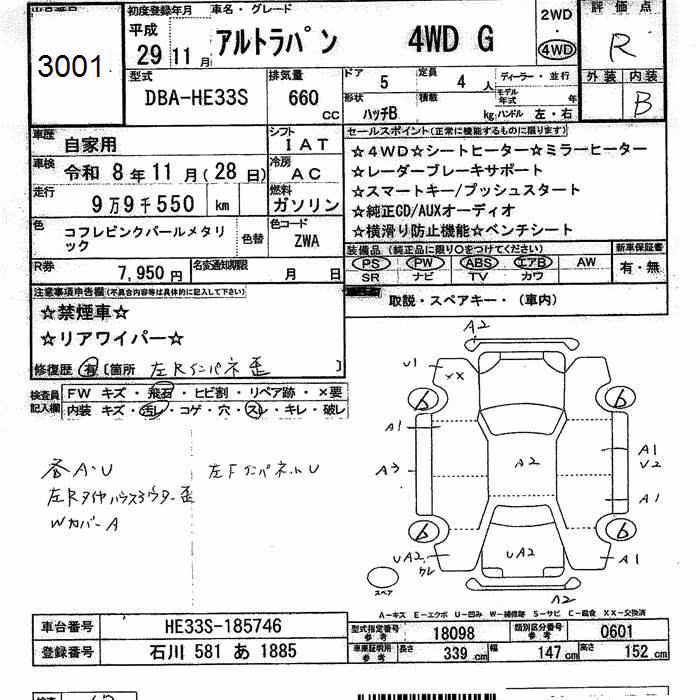 初度登録年月 車名・グレード 2WD 評価点
平成
29 11月 アルトラパン 4WD G 4WD R
3001
外装 内装
型式 排気量 ドア 5 定員 4人 ディーラー・並行
DBA-HE33S 660 cc 形状 ハッチB 積載 kg モデル年式 年 ハンドル 左・右 B
車歴 自家用 シフト IAT セールスポイント(正常に機能するものに限ります)
車検 令和 8年 11月(28日) 冷房 AC
☆4WD☆シートヒーター☆ミラーヒーター
☆レーダーブレーキサポート
走行 9万9千550 km 燃料 ガソリン
☆スマートキー/プッシュスタート
☆純正CD/AUXオーディオ
☆横滑り防止機能☆ベンチシート
色 コフレピンクパールメタリ
ック 色替 色コード ZWA
装備品(純正品に限り○をつけてください) 新車保証書
PS PW ABS エアB AW 有・無
SR ナビ TV カワ
R券 7,950円 名変通知期限 月 日
取説・スペアキー・(車内)
注意事項申告欄(不具合内容等は具体的に記入して下さい)
☆禁煙車☆
☆リアワイパー☆
修復歴 有 [箇所 左Rインパネ歪 ]
検査員 FW キズ・飛石・ヒビ割・リペア跡・×要
記入欄 内装 キズ・汚レ・コゲ・穴・スレ・キレ・破レ
各A・U 左FインパネルU
左Rタイヤハウスアウター歪
WカバーA
A2
U1 XX
6 6
A1 A1
U2
A3 A2
A1
6 6
UA2 UA2 A1
A2
スペア
A−キズ E−エクボ U−凹み W−補修跡 S−サビ C−腐食 XX−交換済
車台番号 HE33S-185746
型式指定番号 参考 18098 類別区分番号 参考 0601
登録番号 石川 581 あ 1885
車庫証明用 参考 長さ 339cm 幅 147cm 高さ 152cm